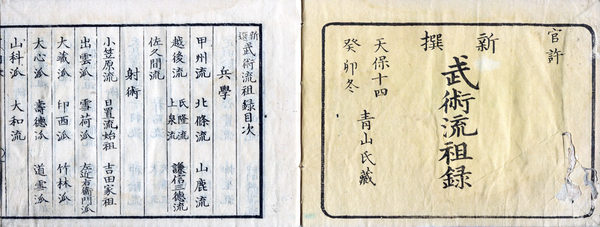 官許
新撰
武術流祖録
天保十四
癸卯冬
青山氏藏
新撰武術流祖録目次
兵學
甲州流 北條流 山鹿流
越後流 氏隆流 上泉流 謙信三德流
佐久間流
射術
小笠原流 日置流始祖 吉田家祖
出雲派 雪荷派 左近右衞門派
大藏派 印西派 竹林派
大心派 壽德派 道雪派
山科派 大和流